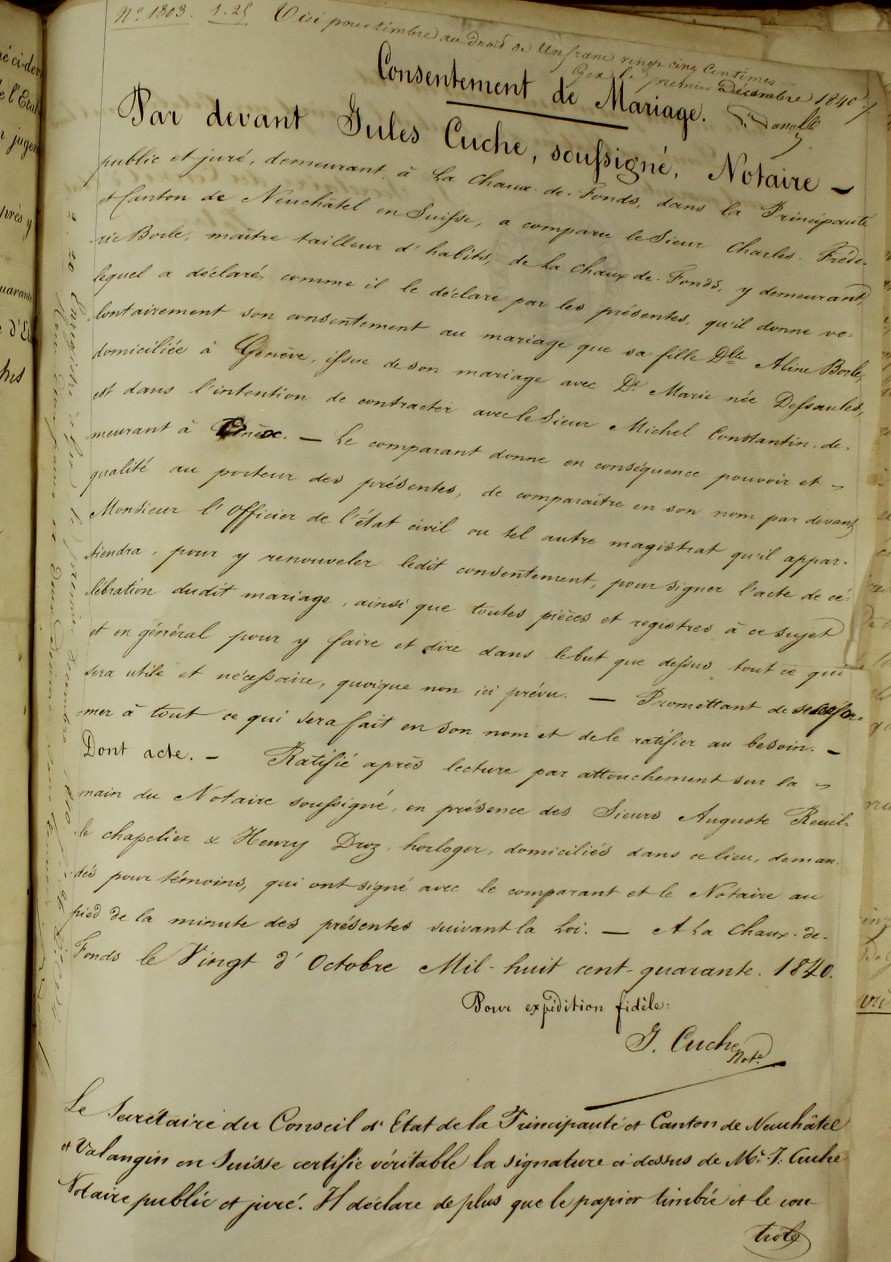 Nº 1303. 1.25 Visé pour timbre au droit de un franc vingt cinq centimes
Gex le premier Décembre 1840
Consentement de Mariage.
Par devant Jules Cuche, soussigné, Notaire –
public et juré, demeurant à La Chaux-de-Fonds, dans la Principauté
et Canton de Neuchâtel en Suisse, a comparu le Sieur Charles Fréde-
ric Borle, maître tailleur d'habits, de La Chaux-de-Fonds, y demeurant,
lequel a déclaré, comme il le déclare par les présentes, qu'il donne vo-
lontairement son consentement au mariage que sa fille Dlle Aline Borle,
domiciliée à Genève, issue de son mariage avec De Marie née Dessaules,
est dans l'intention de contracter avec le Sieur Michel Constantin de-
meurant à – Le comparant donne en conséquence pouvoir et
qualité au porteur des présentes, de comparaître en son nom par devant
Monsieur l'Officier de l'état civil ou tel autre magistrat qu'il appar-
tiendra, pour y renouveler ledit consentement, pour signer l'acte de cé-
lébration dudit mariage, ainsi que toutes pièces et registres à ce sujet
et en général pour y faire et dire dans le but que dessus, tout ce qui
sera utile et nécessaire, quoique non ici prévu. – Promettant de se confor-
mer à tout ce qui sera fait en son nom et de le ratifier au besoin. –
Dont acte. – Ratifié après lecture par attouchement sur la
main du Notaire soussigné, en présence des Sieurs Auguste Reuil-
le chapelier & Henry Droz, horloger, domiciliés dans ce lieu, deman-
dés pour témoins, qui ont signé avec le comparant et le Notaire au
pied de la minute des présentes suivant la Loi. – A La Chaux-de-
Fonds le Vingt d'Octobre Mil-huit cent-quarante. 1840.
Pour expédition fidèle:
J. Cuche Notre
Le Secrétaire du Conseil d'Etat de la Principauté et Canton de Neuchâtel
et Valangin en Suisse certifie véritable la signature ci dessus de Mr J. Cuche
Notaire public et juré. Il déclare de plus que le papier timbré et le con
trole